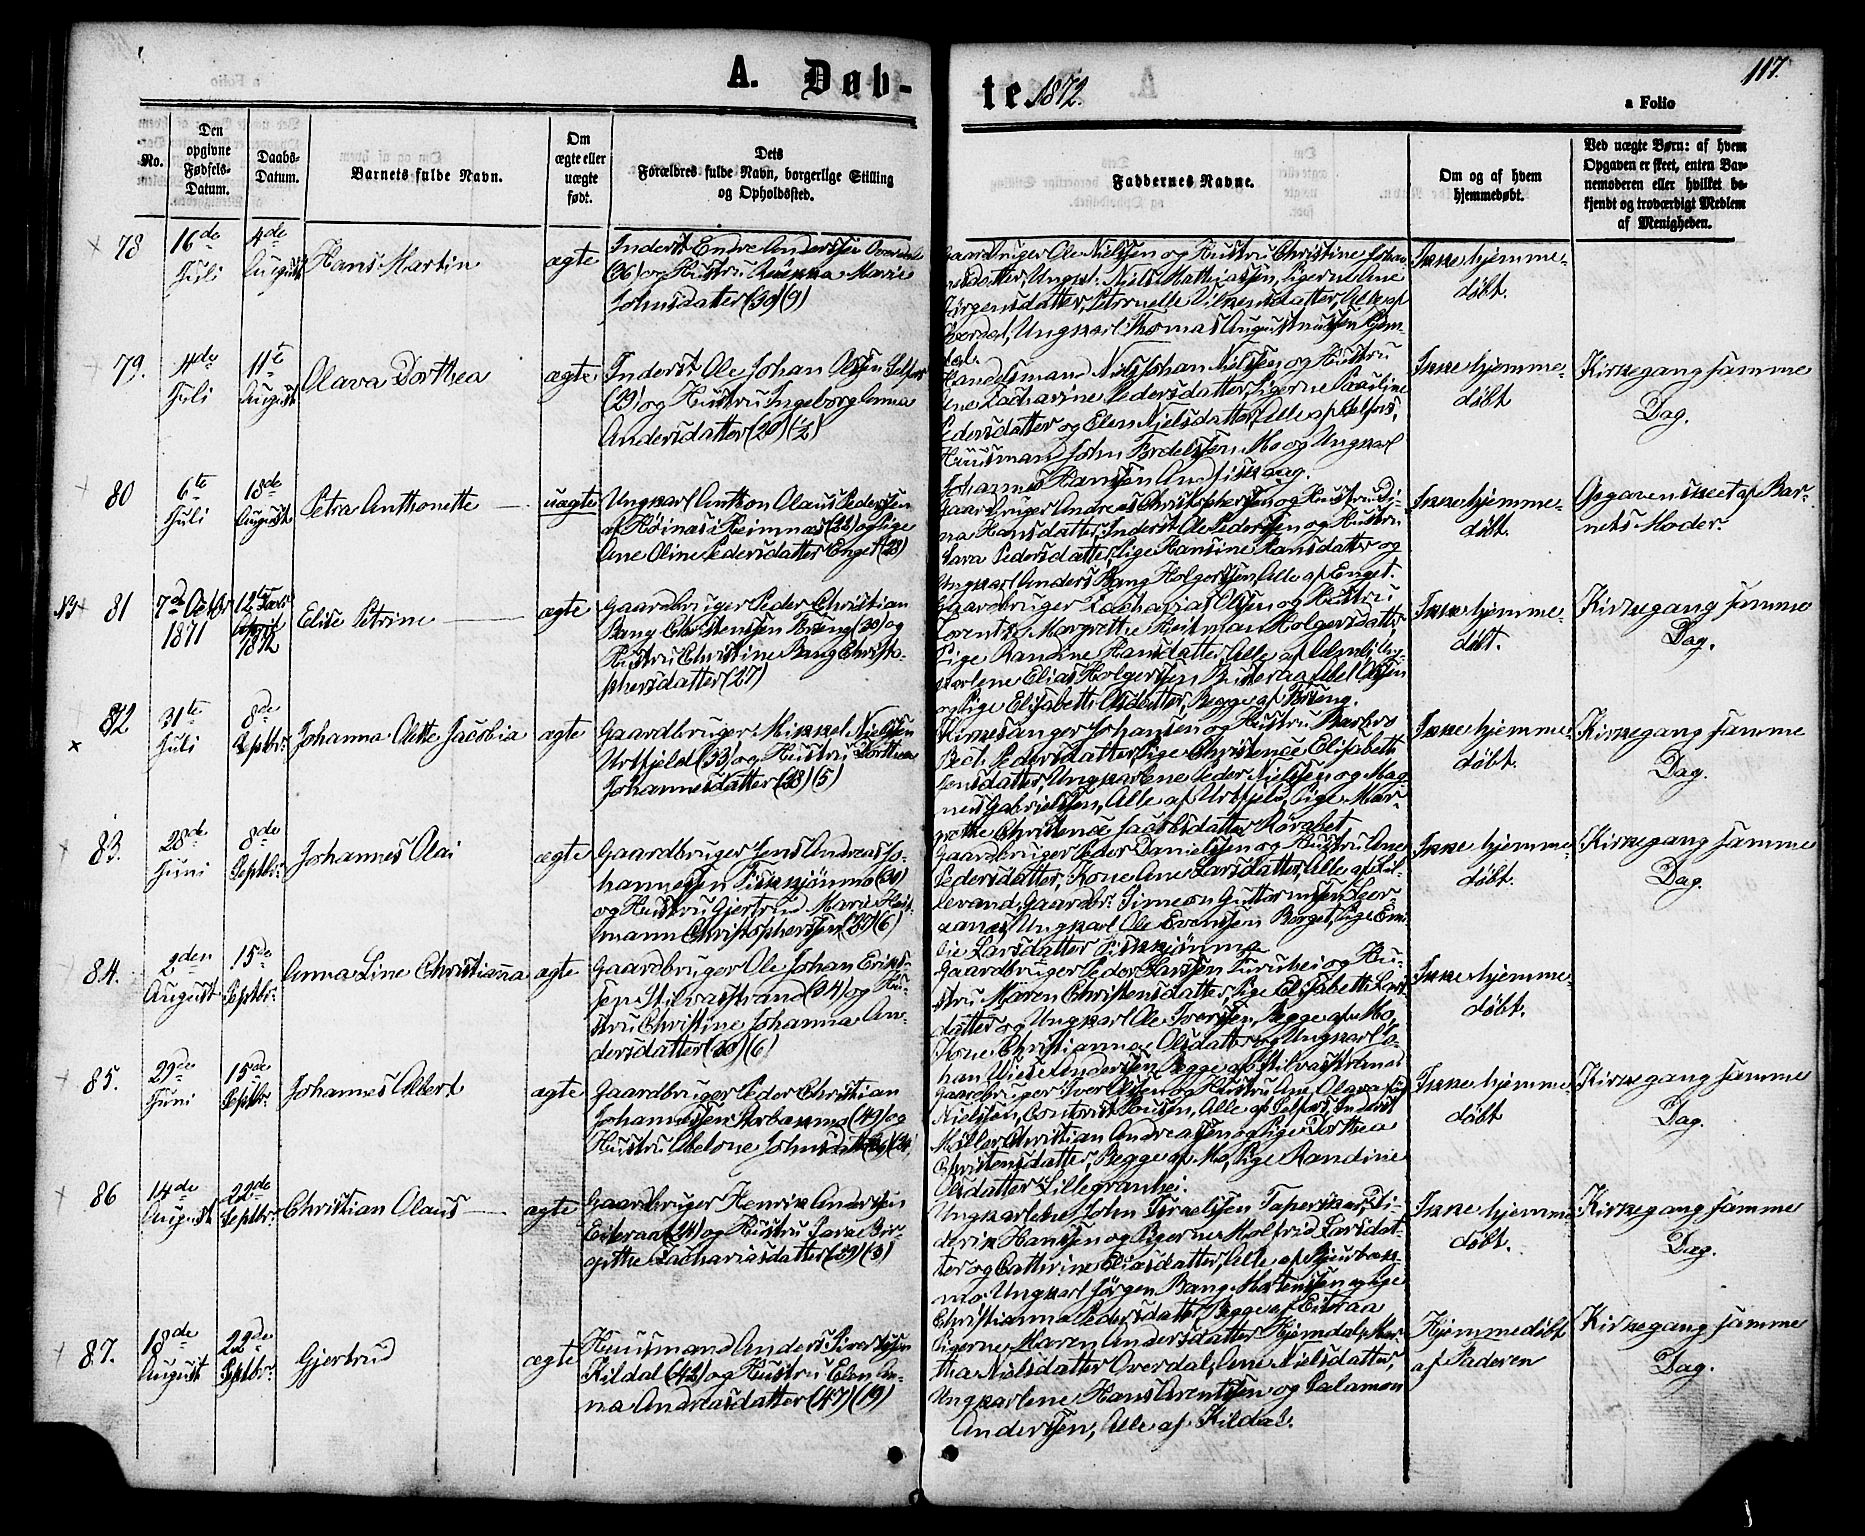 117.
A. Døb-
te 1872.
a Folio
No.
Den opgivne Fødsels-Datum.
Daabs-Datum.
Barnets fulde Navn.
Om ægte eller uægte født.
Dets Forældres fulde Navn, borgerlige Stilling og Opholdssted.
Faddernes Navne.
Om og af hvem hjemmedøbt.
Ved uægte Børn: af hvem Opgaven er skeet, enten Barnemoderen eller hvilket bekjendt og troværdigt Medlem af Menigheden.
78
16de Juli
4de August
Hans Martin
ægte
Inderst Endre Anderssen
(36) og Hustru Marie
Johnsdatter (30) (9)
Gaardbruger Ole Nielssen og Hustru Christine Johan-
Ungk: Niels Mathiassen, Pigerne Ane
Jørgensdatter, Petronelle Alle af
Overdal, Ungkarl Thomas Augustinussen Hjem-
dal.
Ikke hjemme-
døbt.
79.
4de Juli
11te August
Olava Dorthea
ægte
Inderst Ole Johan Olssen Selfors
(29) og Hustru Ingeborg Anna
Andersdatter (20) (½)
Handelsmand Niels Johan Nielssen og Hustru
Ane Zacharine Pedersdatter, Pigerne Pauline
Pedersdatter og Elen Nielsdatter, Alle af Selfors,
Huusmand John Tordelssen Mo og Ungkarl
Johannes Hanssen Andfiskaag.
Ikke hjemme-
døbt
Kirkegang samme
Dag.
80
6te Juli
18de August
Petra Anthonette
uægte
Ungkarl Anthon Olaus Pederssen
af Høinæs i Hemnæs (22) og Pige
Ane Oline Pedersdatter Enget (23)
Gaardbruger Andreas Christopherssen og Hustru Di-
na Hansdatter, Inderst Ole Pederssen og Hustru
Sara Pedersdatter, Pige Hansine Hansdatter og
Ungkarl Anders Bang Holgerssen, Alle af Enget.
Ikke hjemme-
døbt.
Opgaven skeet af Bar-
nets Moder.
NB
81
7de Octbr 1871
1872
Elise Petrine
ægte
Gaardbruger Peder Christian
Bang Christenssen Bræng (30) og
Hustru Christine Bang Christo-
phersdatter (27)
Gaardbruger Zacharias Olssen og Hustru
Lorentze Margrethe Heitman Holgersdatter,
Pige Randine Hansdatter, Alle af Ung-
karlene Elias Holgerssen Abel Olssen
og Pige Elisabeth Olsdatter, Begge af Bræng.
Ikke hjemme-
døbt.
Kirkegang samme
Dag.
82
31te Juli
8de Septbr:
Johanna Olette Jacobia
ægte
Gaardbruger Mikkel Nielssen
Urtfjeld (33) og Hustru Dorthea
Johannesdatter (28) (5)
Kirkesanger Johansen og Hustru Barbro
Bech Pedersdatter, Pige Christence Elisabeth
Jensdatter, Ungkarlene Peder Nielssen og Mag-
nus Gabrielssen, Alle af Urtfjeld, Pige Mar-
grethe Christence Jacobsdatter
Ikke hjemme-
døbt.
Kirkegang samme
Dag.
83.
28de Juni
8de Septbr:
Johannes Olai
ægte
Gaardbruger Jens Andreas Jo-
hannessen Fiskkjønmo (30)
og Hustru Gjertrud Marie Heit-
mann Christopherssen (37) (6)
Gaardbruger Peder Danielssen og Hustru Ane
Pedersdatter, Kone Ane Larsdatter, Alle af Lil-
levand, Gaardbr: Simeon Guttormssen
Ungkarl Ole Evenssen Borget, Pige Emi-
lie Larsdatter Fiskkjønmo
Ikke hjemme-
døbt.
Kirkegang samme
Dag.
84.
2den August
15de Septbr:
Anna Line Christianna
ægte
Gaardbruger Ole Johan Eriks-
sen Stilvasstrand (34) og Hu-
stru Christine Johanna An-
dersdatter (30) (6)
Gaardbruger Peder Larssen Furuhei og Hu-
stru Maren Christensdatter, Pige Elisabeth Lars-
datter og Ungkarl Ole Iverssen, Begge af Mo,
Kone Christianna Olsdatter og Ungkarl Jo-
han Wiese Anderssen, Begge af Stilvasstrand
Ikke hjemme-
døbt.
85.
29de Juni
15de Septbr:
Johannes Albert
ægte
Gaardbruger Peder Christian
Johannessen (49) og
Hustru Abelone Johnsdatter
Gaardbruger Iver Olssen og Hustru Ane Olava
Nielssen, Alle af Selfors, Inderst
Møller Christian Andreassen og Pige Dorthea
Christensdatter, Begge af Mo, Pige Randine
Olsdatter Lillegranhei.
Ikke hjemme-
døbt
Kirkegang samme
Dag.
86
14de August
22de Septbr:
Christian Olaus
ægte
Gaardbruger Henrik Anderssen
Eiteraa (24) og Hustru Sara Bir-
gitthe Zachariasdatter (29) (3)
Ungkarlene John Israelssen Taperskar, Di-
derik Hanssen og Pigerne Malfrid Larsdat-
ter og Cathrine Eliasdatter, Alle af
mo, Ungkarl Jørgen Bang Mortenssen og Pige
Christianna Pedersdatter, Begge af Eiteraa
Ikke hjemme-
døbt.
Kirkegang samme
Dag.
87.
18de August
22de Septbr:
Gjertrud
ægte
Huusmand Anders Sivertssen
Kildal (42) og Hustru Elen An-
na Andreasdatter (47) (19)
Pigerne Maren Andersdatter Hjemdal, Mar-
tha Nielsdatter Overdal, Ane Nielsdatter,
Ungkarlene Hans Arentssen og Salamon
Anderssen, Alle af Kildal.
Hjemmedøbt
af Faderen
Kirkegang samme
Dag.